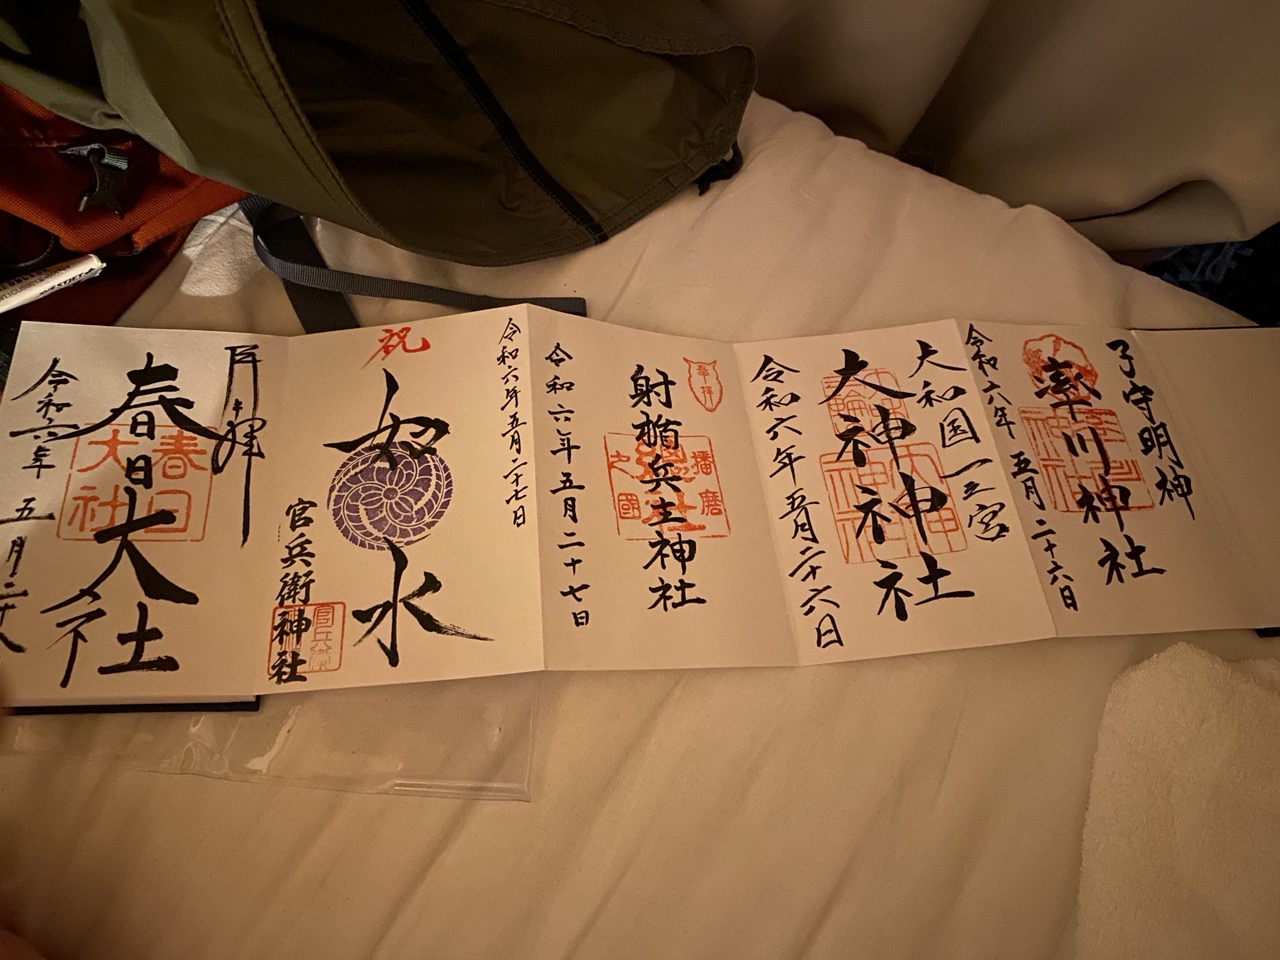 子守明神
率川神社
令和六年五月二十六日
大和国一之宮
大神神社
令和六年五月二十六日
奉拝
射楯兵主神社
播磨
之國
令和六年五月二十七日
令和六年五月二十七日
祝
如水
官兵衛神社
官兵衛
奉拝
春日大社
春日
大社
令和六年五月二十八